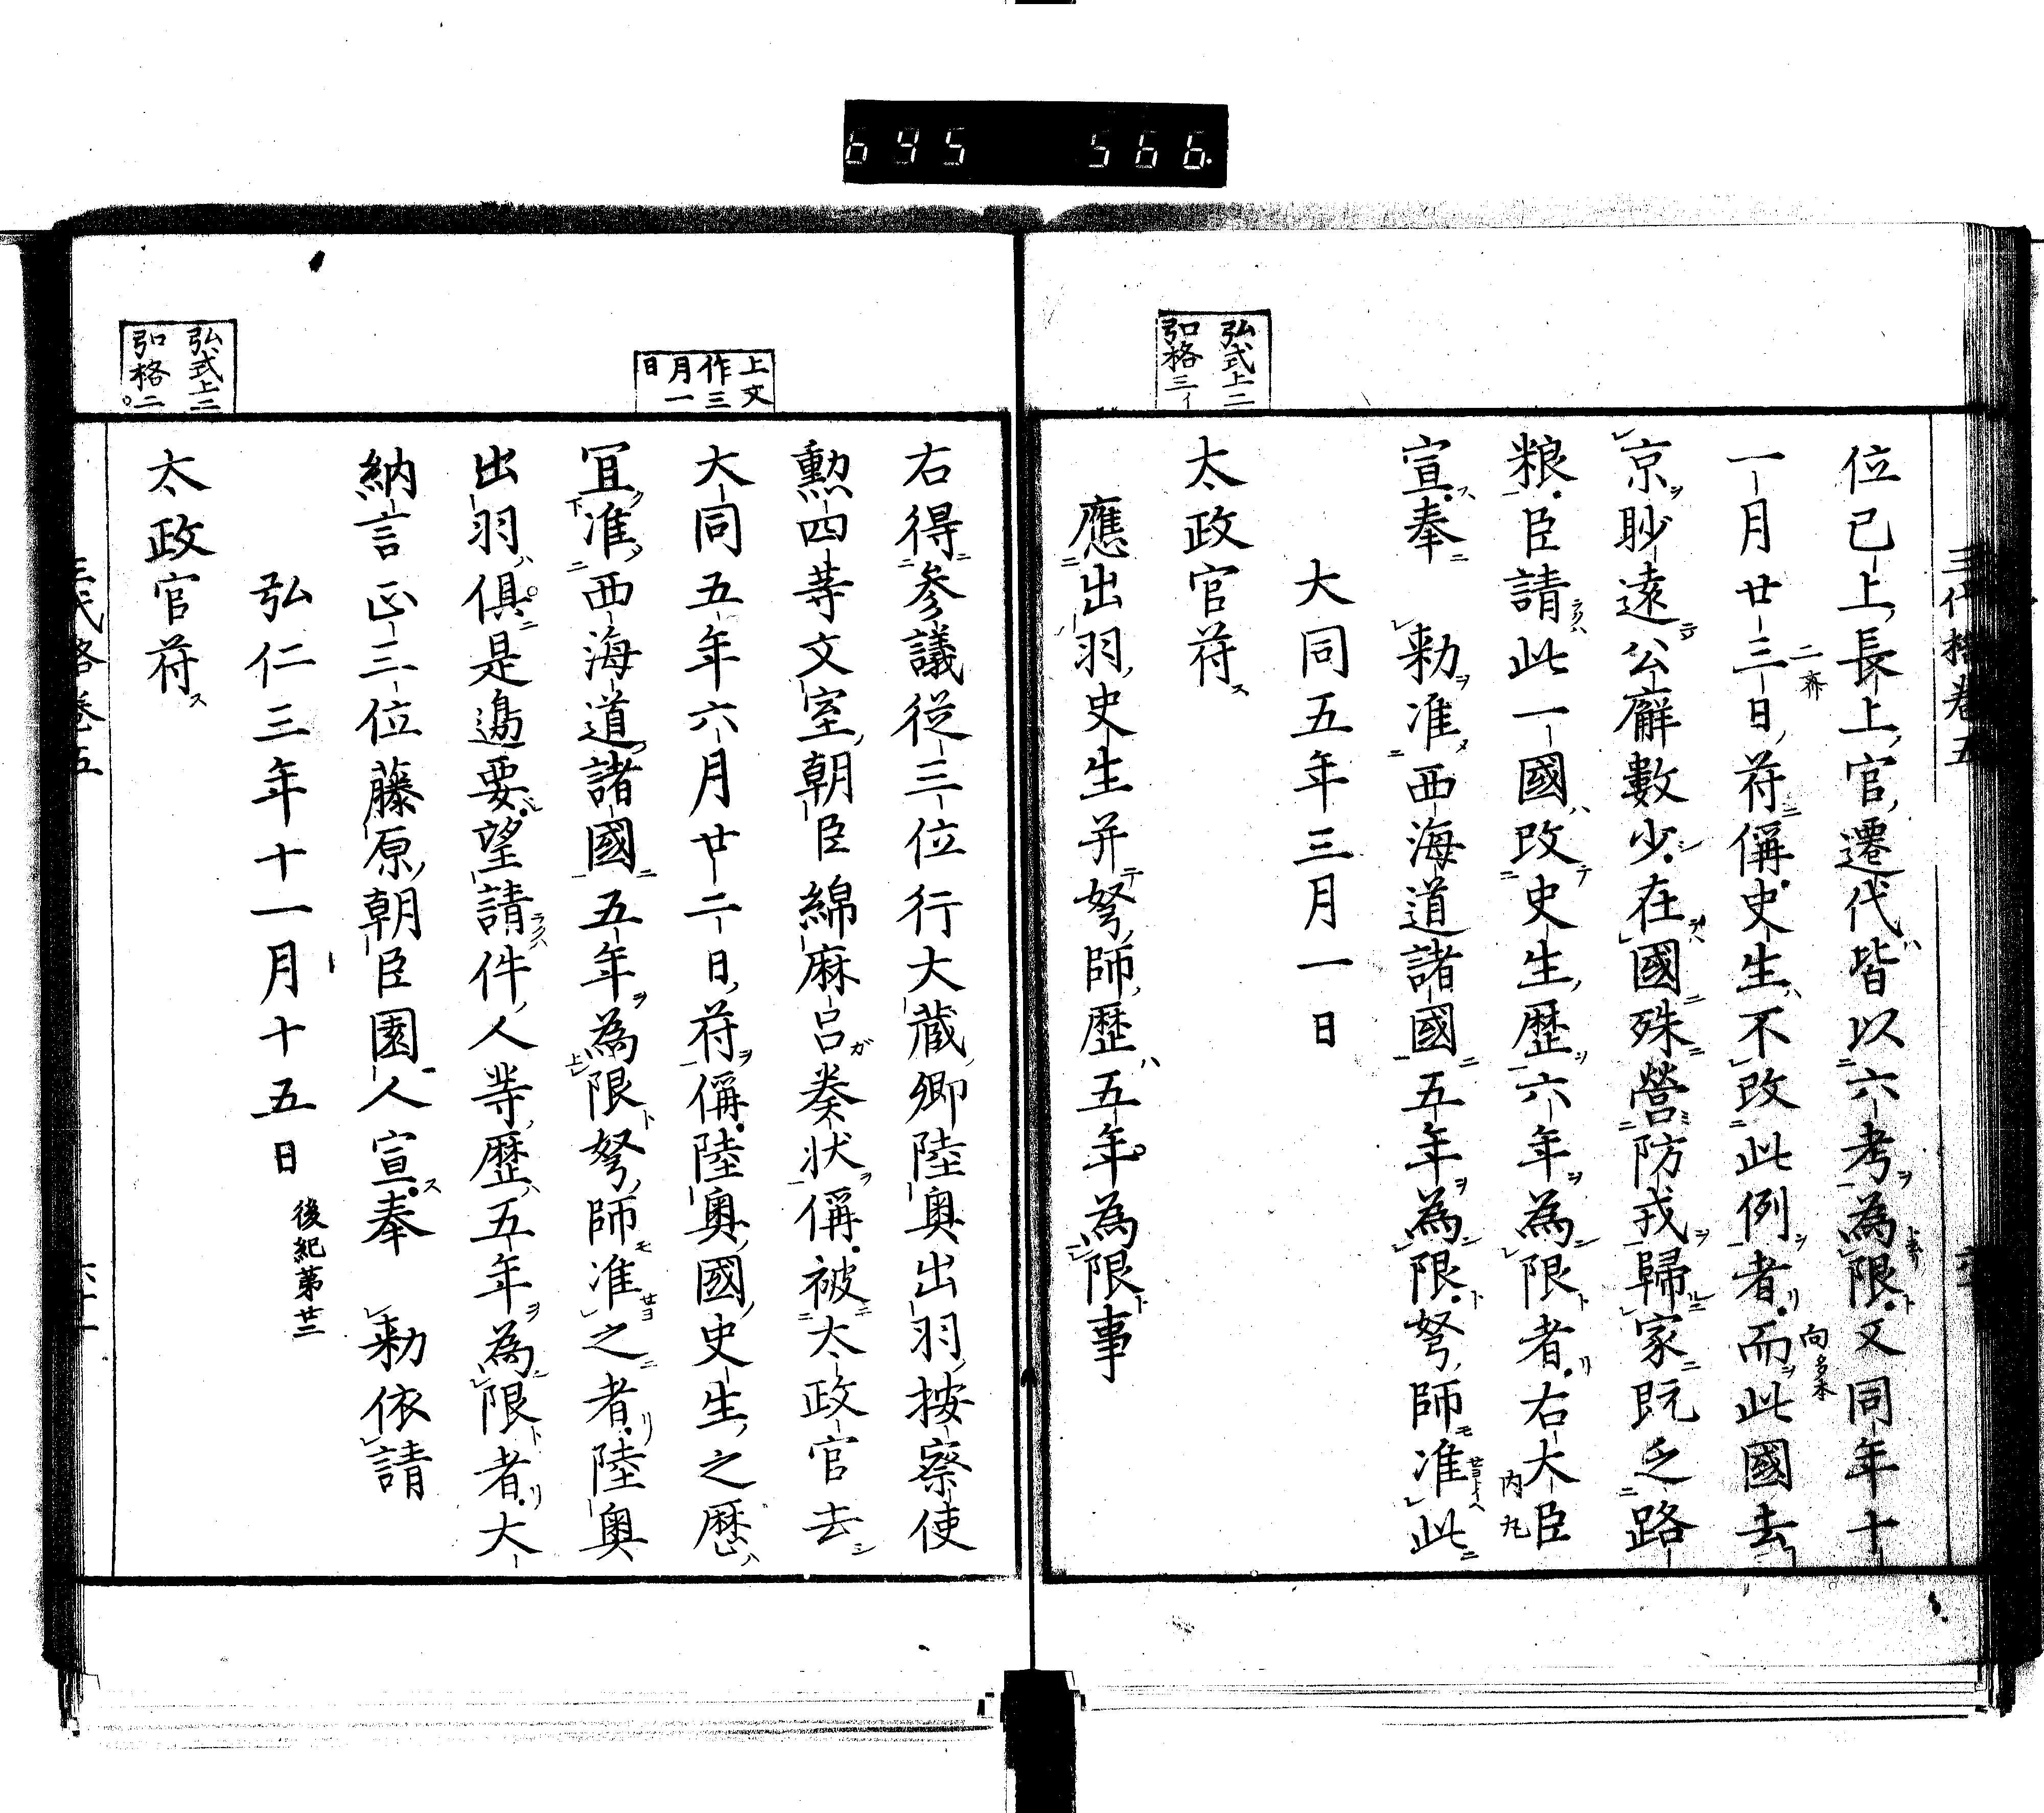 695 566
三代格卷五
弘式上二
弘格三イ
位已上長上官遷代皆以六考為限又同年十
一月廿三日符偁史生不改此例者而此國去
京眇遠公廨數少在國殊營防戎歸家既乏路
粮臣請此一國改史生歷六年為限者右大臣
宣奉　勅准西海道諸國五年為限弩師准此
大同五年三月一日
太政官符
應出羽史生并弩師歷五年為限事
上文
作三
月一
日
弘式上二
弘格二
右得參議從三位行大藏卿陸奧出羽按察使
勲四等文室朝臣綿麻呂奏狀偁被太政官去
大同五年六月廿二日符偁陸奧國史生之歷
冝准西海道諸國五年為限弩師准之者陸奧
出羽俱是邊要望請件人等歷五年為限者大
納言正三位藤原朝臣園人宣奉　勅依請
弘仁三年十一月十五日 後紀第廿二
太政官符
三代格卷五